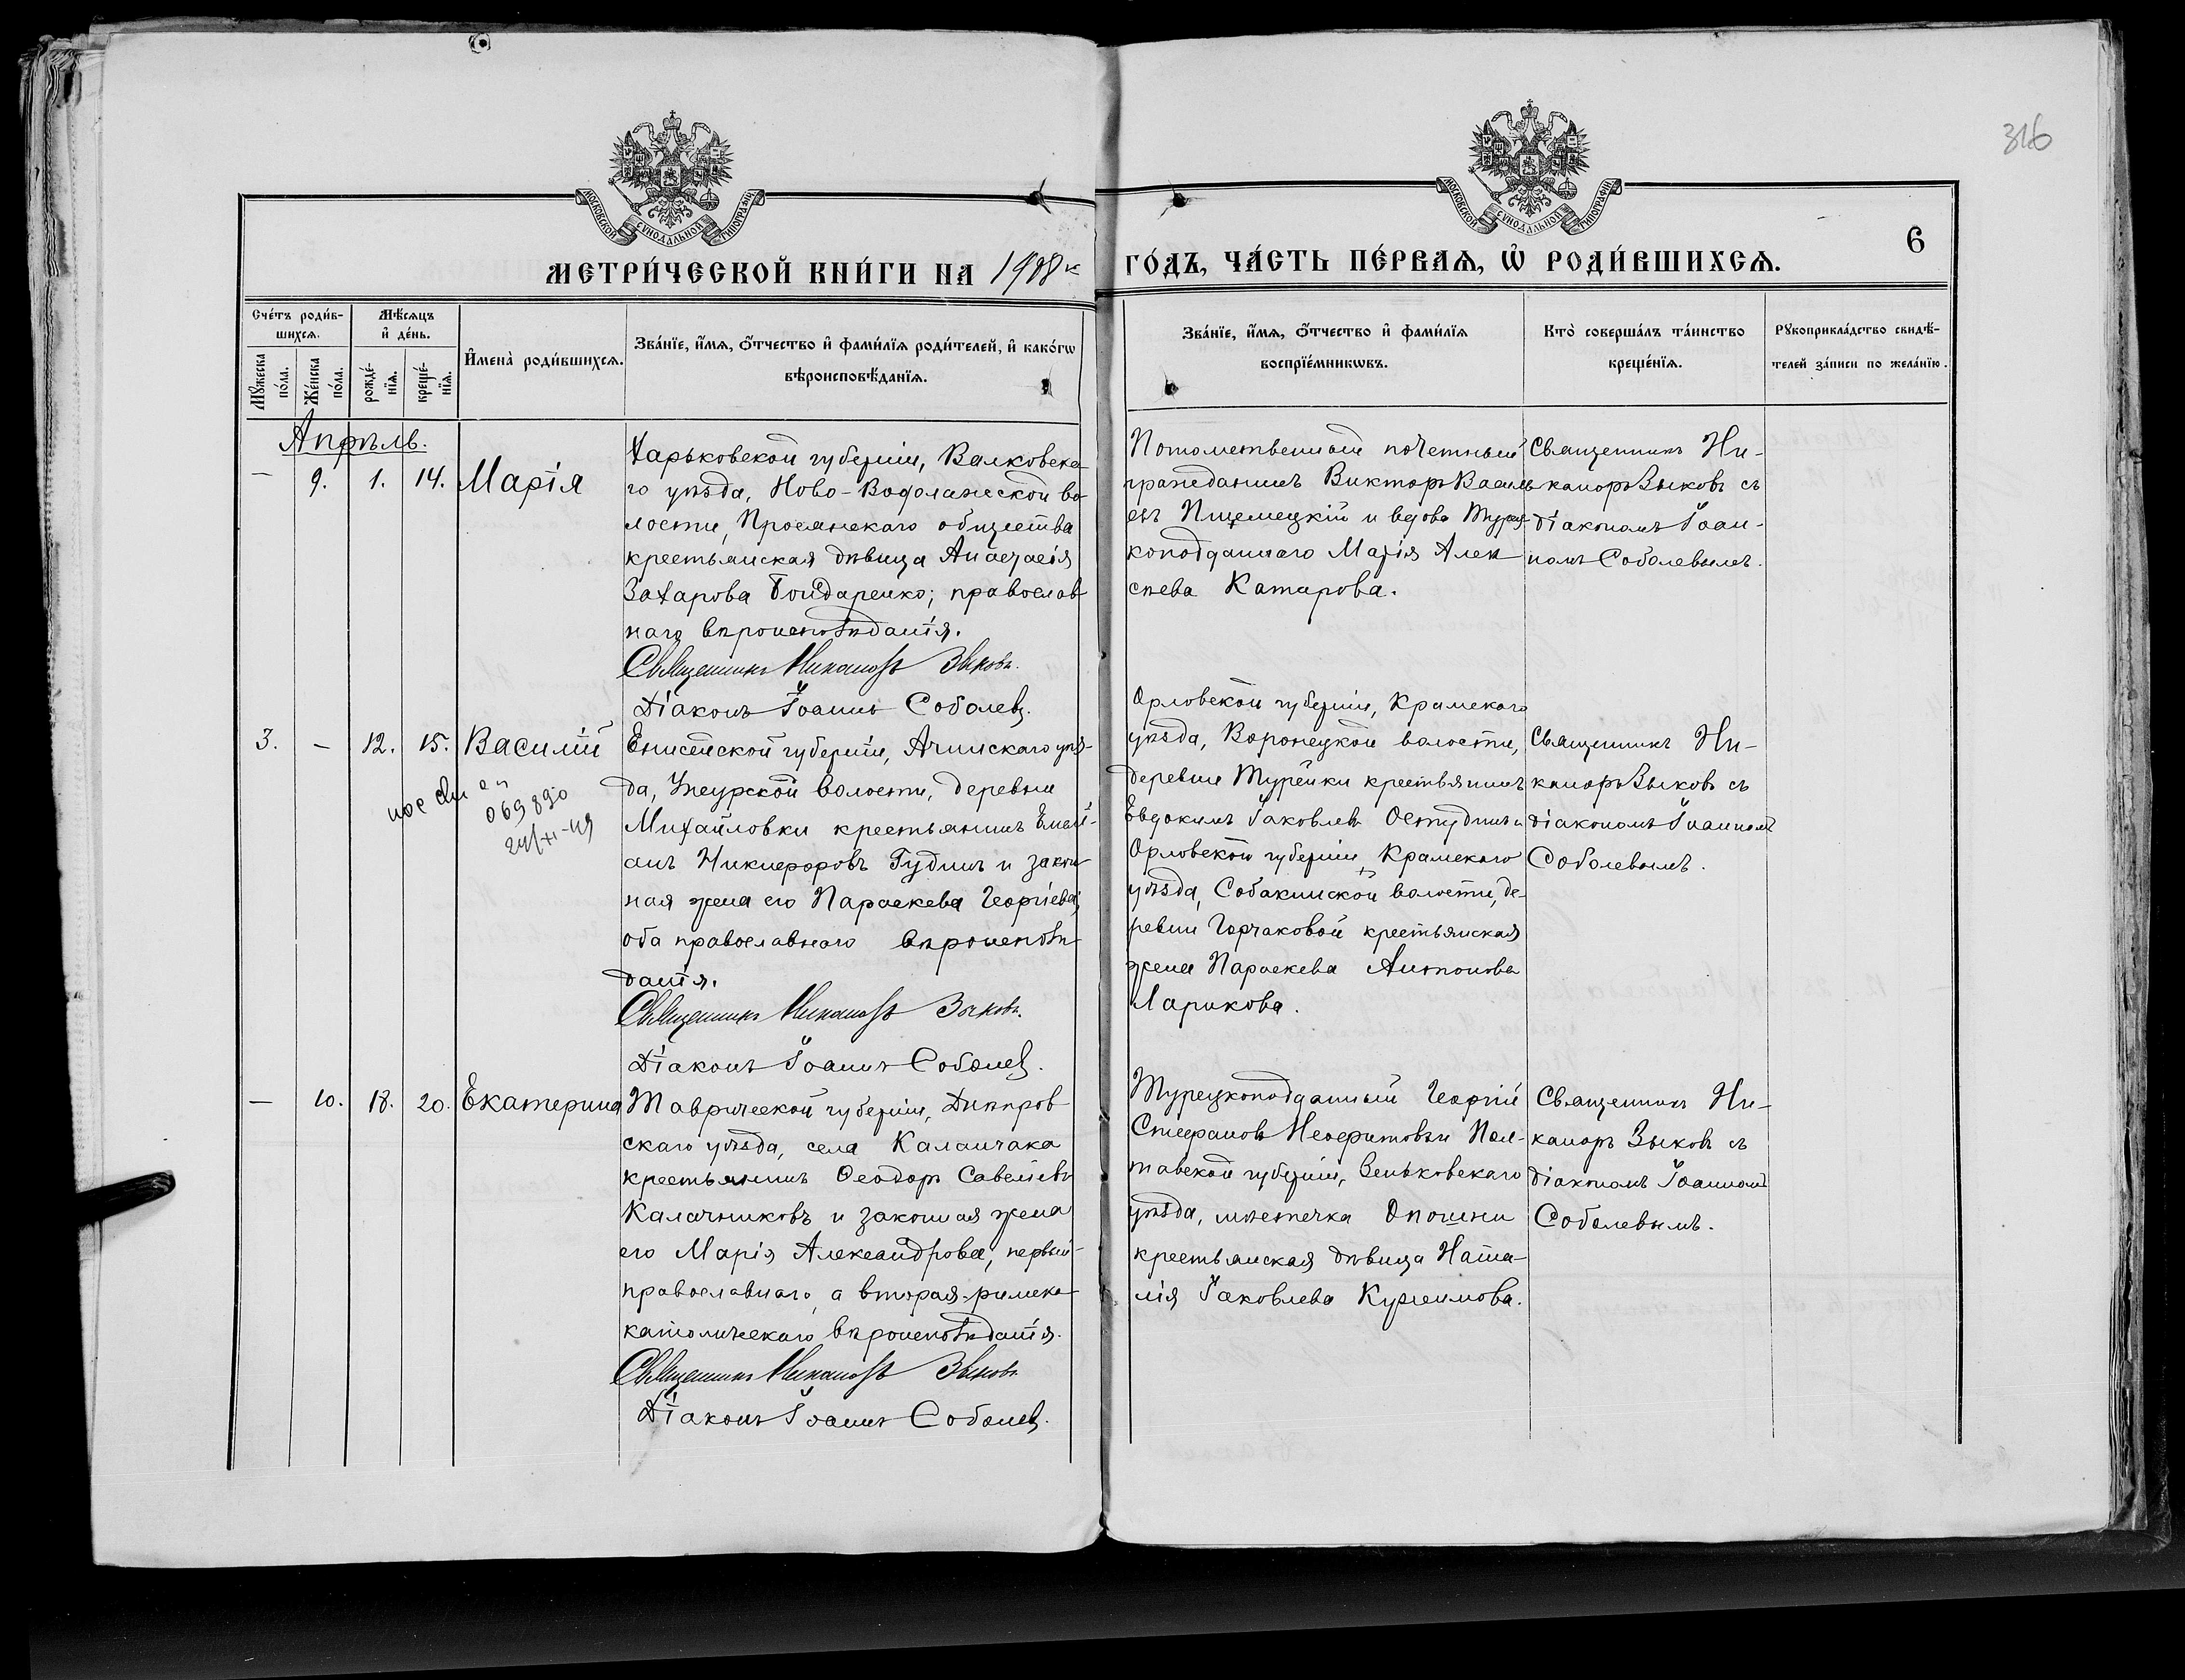 316
МОСКОВСКОЙ СѴНОДАЛЬНОЙ ТИПОГРАФІИ
МОСКОВСКОЙ СѴНОДАЛЬНОЙ ТИПОГРАФІИ
6
МЕТРИ́ЧЕСКОЙ КНИ́ГИ НА 1908
ГО́ДЪ, ЧА́СТЬ ПЕ́РВАѦ, Ѡ҆ РОДИ́ВШИХСѦ.
Сче́тъ роди́в-
шихсѧ.
Мꙋ́жеска
по́ла.
Же́нска
по́ла.
Мѣ́сѧцъ
и҆ де́нь.
рожде́-
нїѧ.
креще́-
нїѧ.
И҆мена̀ роди́вшихсѧ.
Зва́нїе, и҆́мѧ, ѻ҆́тчество и҆ фами́лїѧ роди́телей, и҆ како́гѡ
вѣроисповѣ́данїѧ.
Зва́нїе, и҆́мѧ, ѻ҆́тчество и҆ фами́лїѧ
воспрїе́мникѡвъ.
Кто̀ соверша́лъ та́инство
креще́нїѧ.
Рꙋкоприкла́дство свидѣ́-
телей за́писи по жела́нїю.
Апрѣль.
— 9. 1. 14. Марія
Харьковской губерніи, Валковска-
го уѣзда, Ново-Водолажской во-
лости, Просянскаго общества
крестьянская дѣвица Анастасія
Захарова Бондаренко; православ-
наго вѣроисповѣданія.
Священникъ Никаноръ Зыковъ.
Діаконъ Іоаннъ Соболевъ.
Потомственный почетный
гражданинъ Викторъ Василь-
евъ Пщемецкій и вдова Турец-
коподданнаго Марія Алек-
сѣева Катарова.
Священникъ Ни-
каноръ Зыковъ съ
діакономъ Іоан-
номъ Соболевымъ.
3. — 12. 15. Василій
069890
24/XI-49
Енисейской губерніи, Ачинскаго уѣз-
да, Ужурской волости, деревни
Михайловки крестьянинъ Емель-
анъ Никифоровъ Гудинъ и закон-
ная жена его Параскева Георгіева;
оба православнаго вѣроисповѣ-
данія.
Священникъ Никаноръ Зыковъ.
Діаконъ Іоаннъ Соболевъ.
Орловской губерніи, Крамскаго
уѣзда, Воронецкой волости,
деревни Турейки крестьянинъ
Евдокимъ Іаковлевъ Остудинъ и
Орловской губерніи, Крамскаго
уѣзда, Собакинской волости, де-
ревни Горчаковой крестьянская
жена Параскева Антонова
Ларикова.
Священникъ Ни-
каноръ Зыковъ съ
діакономъ Іоанномъ
Соболевымъ.
— 10. 18. 20. Екатерина
Таврической губерніи, Днѣпров-
скаго уѣзда, села Каланчака
крестьянинъ Ѳеодоръ Савельевъ
Калачниковъ и законная жена
его Марія Александрова, первый-
православнаго, а вторая-римско-
католическаго вѣроисповѣданія.
Священникъ Никаноръ Зыковъ
Діаконъ Іоаннъ Соболевъ.
Турецкоподданный Георгій
Стефановъ Неофитовъ и Пол-
тавской губерніи, Зеньковскаго
уѣзда, мѣстечка Опошни
крестьянская дѣвица Ната-
лія Іаковлева Кужимова.
Священникъ Ни-
каноръ Зыковъ съ
діакономъ Іоанномъ
Соболевымъ.